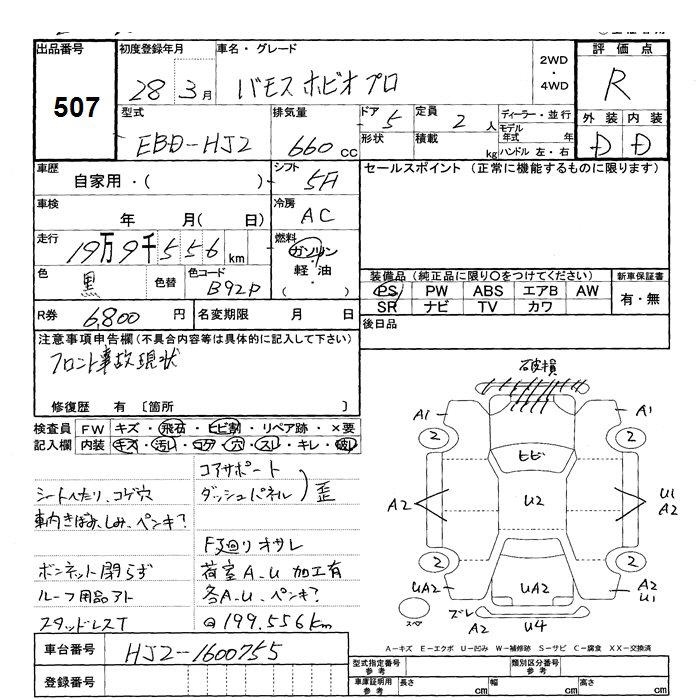 出品番号 初度登録年月 車名・グレード 2WD・4WD 評価点
507 28 3月 バモスホビオプロ R
型式 排気量 ドア 5 定員 2 人 ディーラー・並行 外装 内装
EBD-HJ2 660 cc 形状 積載 kg モデル年式 年 D D
ハンドル 左・右
車歴 自家用・( ) シフト 5F セールスポイント (正常に機能するものに限ります)
車検 年 月( 日) 冷房 AC
走行 19万9千556 km 燃料 ガソリン・軽油・( )
色 黒 色替 色コード B92P
装備品 (純正品に限り〇をつけてください) 新車保証書
PS PW ABS エアB AW 有・無
SR ナビ TV カワ
R券 6,800 円 名変期限 月 日 後日品
注意事項申告欄(不具合内容等は具体的に記入して下さい)
フロント事故現状
修復歴 有 〔箇所 〕
検査員 FW キズ・飛石・ヒビ割・リペア跡・×要
記入欄 内装 キズ・汚レ・コゲ・穴・スレ・キレ・破レ
コアサポート
ダッシュパネル)歪
シートへたり、コゲ穴
車内きばみ、しみ、ペンキ?
F廻りオサレ
ボンネット閉らず 荷室A、U 加工有
ルーフ用品アト 各A、U、ペンキ?
スタッドレスT @199,556km
破損
A1 A1
2 2
ヒビ
A2 U2 U1 A2
2 2
UA2 UA2 A2 U1
スペ ズレ A2 U4
A-キズ E-エクボ U-凹み W-補修跡 S-サビ C-腐食 XX-交換済
車台番号 HJ2-1600755
登録番号
型式指定番号 参考 類別区分番号 参考
車庫証明用 参考 長さ cm 幅 cm 高さ cm